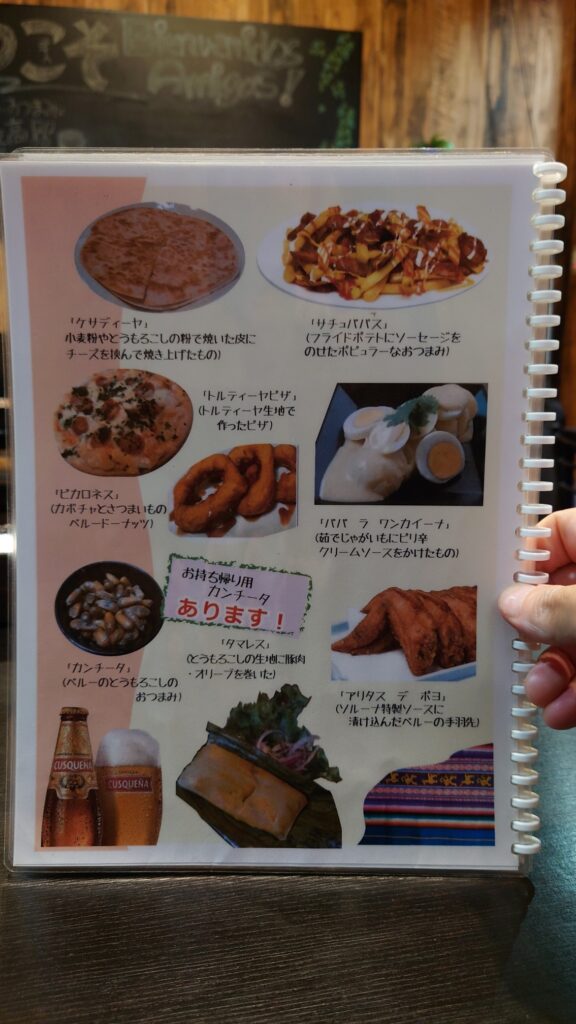 Bienvenidos
Amigos!
「ケサディーヤ」
小麦粉やとうもろこしの粉で焼いた皮に
チーズを挟んで焼き上げたもの)
「サチュパパス」
(フライドポテトにソーセージを
のせたポピュラーなおつまみ)
「トルティーヤピザ」
(トルティーヤ生地で
作ったピザ)
「ピカロネス」
(カボチャとさつまいもの
ペルードーナッツ)
「パパ ラ ワンカイーナ」
(茹でじゃがいもにピリ辛
クリームソースをかけたもの)
お持ち帰り用
カンチータ
あります!
「カンチータ」
(ペルーのとうもろこしの
おつまみ)
「タマレス」
(とうもろこしの生地に豚肉
・オリーブを巻いた)
「アリタス デ ポヨ」
(ソルーナ特製ソースに
漬け込んだペルーの手羽先)
CUSQUEÑA
CUSQUEÑA